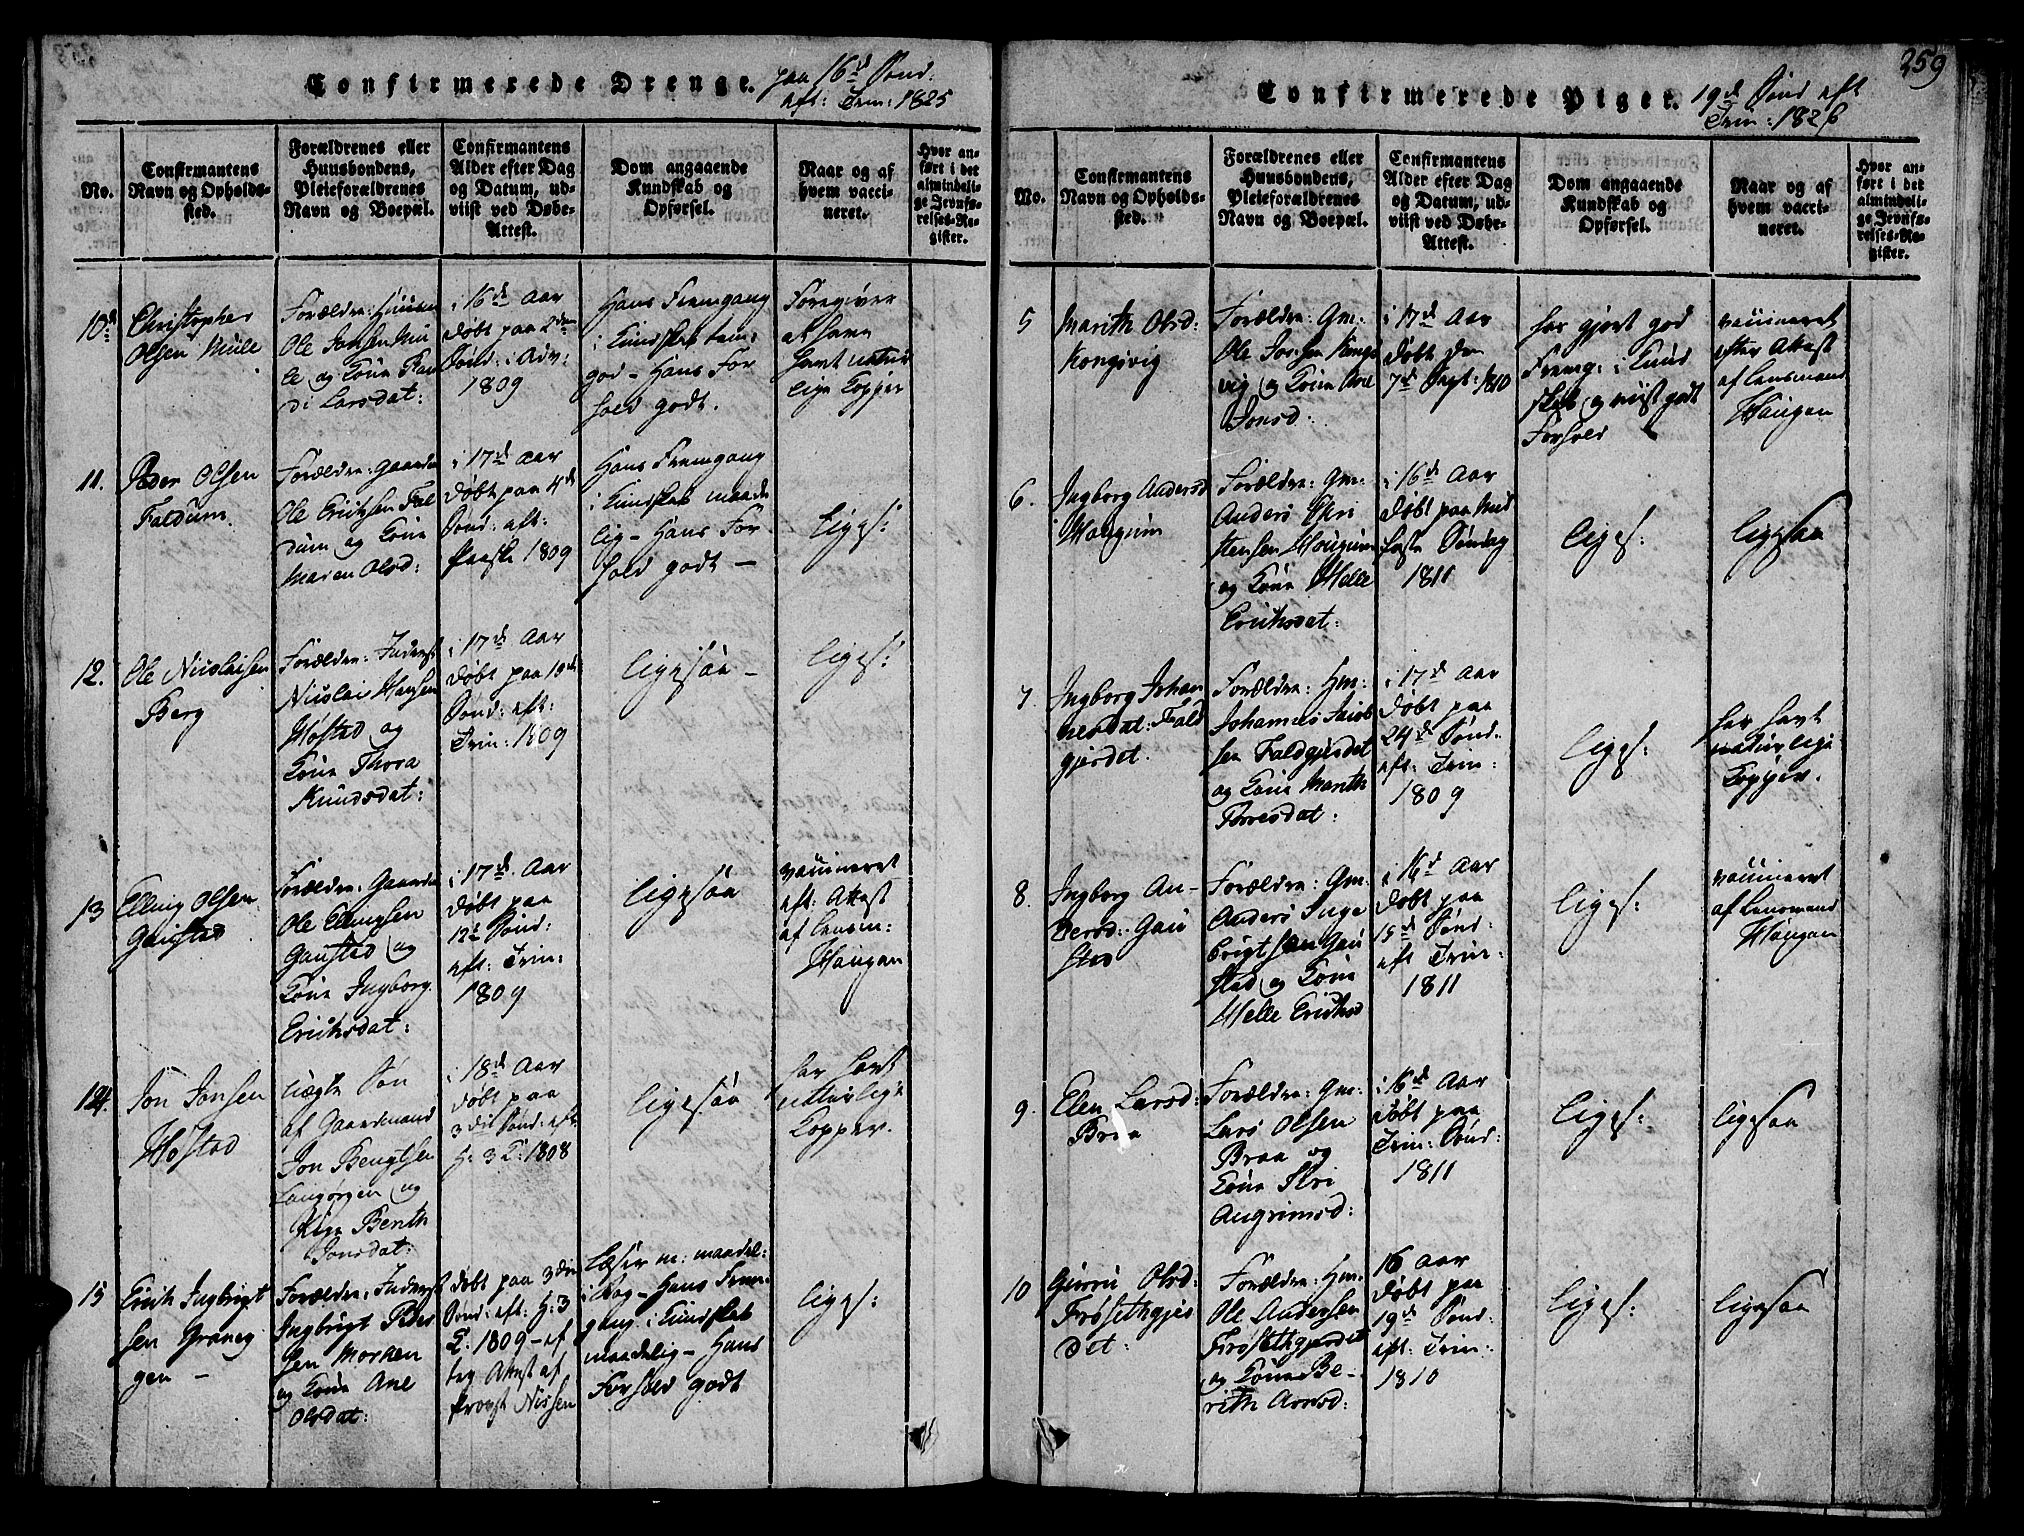 Confirmerede Drenge. paa 16d Sönd:
aft: Trin: 1825
No.
Confirmantens
Navn og Opholds-
sted.
Forældrenes eller
Huusbondens,
Pleieforældrenes
Navn og Boepæl.
Confirmantens
Alder efter Dag
og Datum, ud-
viist ved Døbe-
Attest.
Dom angaaende
Kundskab og
Opførsel.
Naar og af
hvem vacci-
neret.
Hvor an-
ført i det
almindeli-
ge Jevnfø-
relses-Re-
gister.
10d
Christopher
Olsen Mule
Forældre:
Ole Jonsen Mu
le og Kone Ran
di Larsdat:
i 16d Aar
døbt paa 2den
Sönd: i Adv:
1809
Hans Fremgang
i Kundskab tem:
god – Hans For
hold godt.
Foregiver
at have
havt natur
lige Kopper
11.
Peder Olsen
Faldum.
Forældre: Gaardm
Ole Erichsen Fal
dum og Kone
Maren Olsd:
i 17d Aar
døbt paa 4d
Sönd: aft:
Paaske 1809
Hans Fremgang
i Kundskab maade
lig – Hans For
hold godt –
liges:
12.
Ole Nicolaisen
Berg
Forældre: Inderst
Nicolai Hansen
Høstad og
Kone Thora
Knudsdat:
i 17d Aar
døbt paa 10d
Sönd: aft:
Trin: 1809
ligesaa –
liges:
13
Elling Olsen
Gaustad
Forældre: Gaardm
Ole Ellingsen
Gaustad og
Kone Ingborg
Erichsdat:
i 17d Aar
døbt paa
12d Sönd:
aft: Trin:
1809
ligesaa
vaccineret
aft: Attest
af Lensm:
Haugan
14.
Jon Jonsen
Høstad
uægte Sön
af Gaardmand
Jon Bengtsen
Langørgen og
Pige Berith
Jonsdat:
i 18d Aar
døbt paa
3die Sönd: aft
H: 3 K: 1808
ligesaa
har havt
naturlige
Kopper.
15
Erich Ingbrigt
sen Graneg
gen –
Forældre: Inderst
Ingbrigt Peder
sen Morken
og Kone Ane
Olsdat:
døbt paa 3die
Sönd: aft: H: 3
K: 1809 – af
Attest af
Provst Nissen
Læser m: maadel:
i Bog – Hans Frem
gang i Kundskab
maadelig – Hans
Forhold godt
liges:
259
Confirmerede Piger. 19d Sönd aft
Trin: 1826
No.
Confirmantens
Navn og Opholds-
sted.
Forældrenes eller
Huusbondens,
Pleieforældrenes
Navn og Boepæl.
Confirmantens
Alder efter Dag
og Datum, ud-
viist ved Døbe-
Attest.
Dom angaaende
Kundskab og
Opførsel.
Naar og af
hvem vacci-
neret.
Hvor an-
ført i det
almindeli-
ge Jevnfø-
relses-Re-
gister.
5
Marith Olsd:
Kongsvig
Forældre: Gm:
Ole Jonsen Kongs
vig og Kone Ane
Jonsd:
i 17d Aar
døbt den
7d Sept: 1810
har gjort god
Fremg: i Kund
skab og viist godt
Forhold
vaccineret
efter Attest
af Lensmand
Haugan
6.
Ingborg Andersd
Haugum
Forældre: Gm:
Anders Chri
stensen Haugum
og Kone Helle
Erichsdat:
i 16d Aar
døbt paa Mid
faste Söndag
1811
liges:
ligesaa
7
Ingborg Johan
nesdat: Fald
gjerdet.
Forældre: Hm:
Johannes Jacob
sen Faldgjerdet
og Kone Marith
Torresdat:
i 17d Aar
døbt paa
24d Sönd:
aft: Trin:
1809
liges:
har havt
naturlige
Kopper.
8.
Ingborg An-
dersd: Gau
stad
Forældre: Gm:
Anders Inge
brigtsen Gau
stad og Kone
Helle Erichsd
i 16d Aar
døbt paa
15d Sönd:
aft Trin:
1811
liges:
vaccineret
af Lensmand
Haugan
9.
Elen Larsd:
Braa
Forældre: Gm:
Lars Olsen
Braa og
Kone Siri
Angrimsd:
i 16d Aar
døbt paa
Trin: Sönd:
1811
liges:
ligesaa
10
Gurru Olsd:
Frøsethgjer
det:
Forældre: Hm:
Ole Andersen
Frøsethgjerdet
og Kone Be-
rith Arnsd:
16 Aar
døbt paa
19d Sönd:
aft: Trin:
1810
liges:
ligesaa